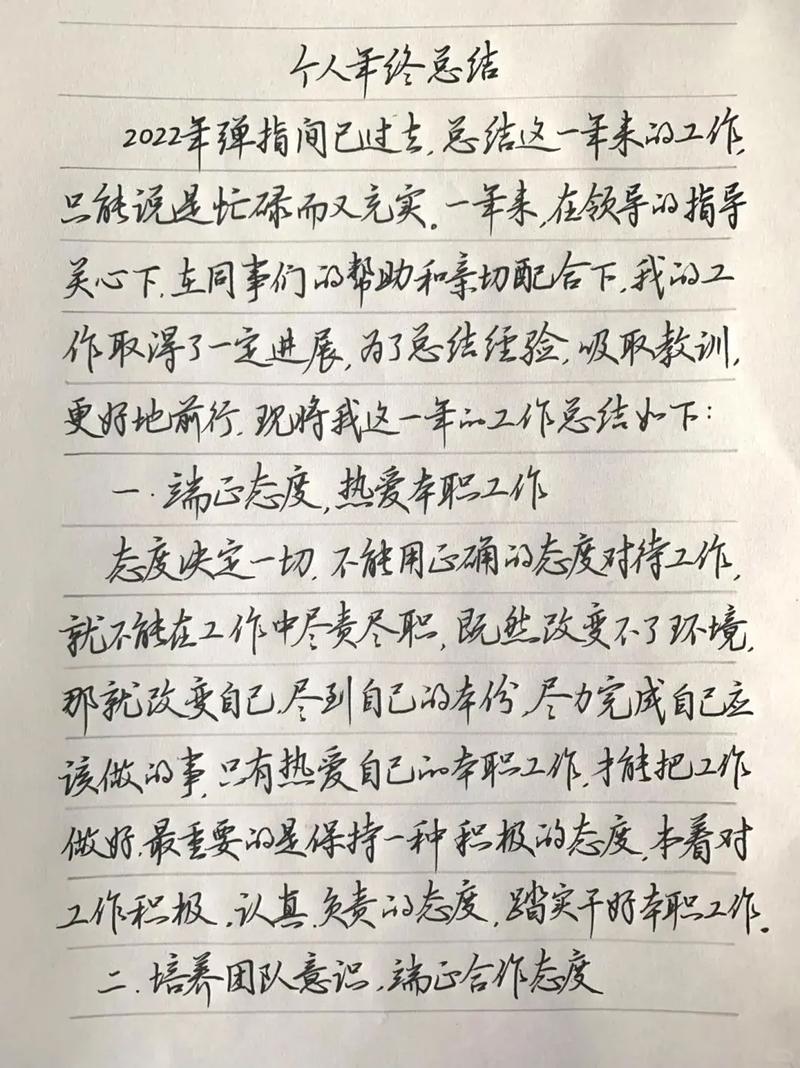 个人年终总结
2022年弹指间已过去,总结这一年来的工作,
只能说是忙碌而又充实。一年来,在领导的指导
关心下,在同事们的帮助和亲切配合下,我的工
作取得了一定进展,为了总结经验,吸取教训,
更好地前行,现将我这一年的工作总结如下:
一.端正态度,热爱本职工作
态度决定一切,不能用正确的态度对待工作,
就不能在工作中尽责尽职,既然改变不了环境,
那就改变自己,尽到自己的本份,尽力完成自己应
该做的事,只有热爱自己的本职工作,才能把工作
做好,最重要的是保持一种积极的态度,本着对
工作积极,认真,负责的态度,踏实干好本职工作。
二.培养团队意识,端正合作态度